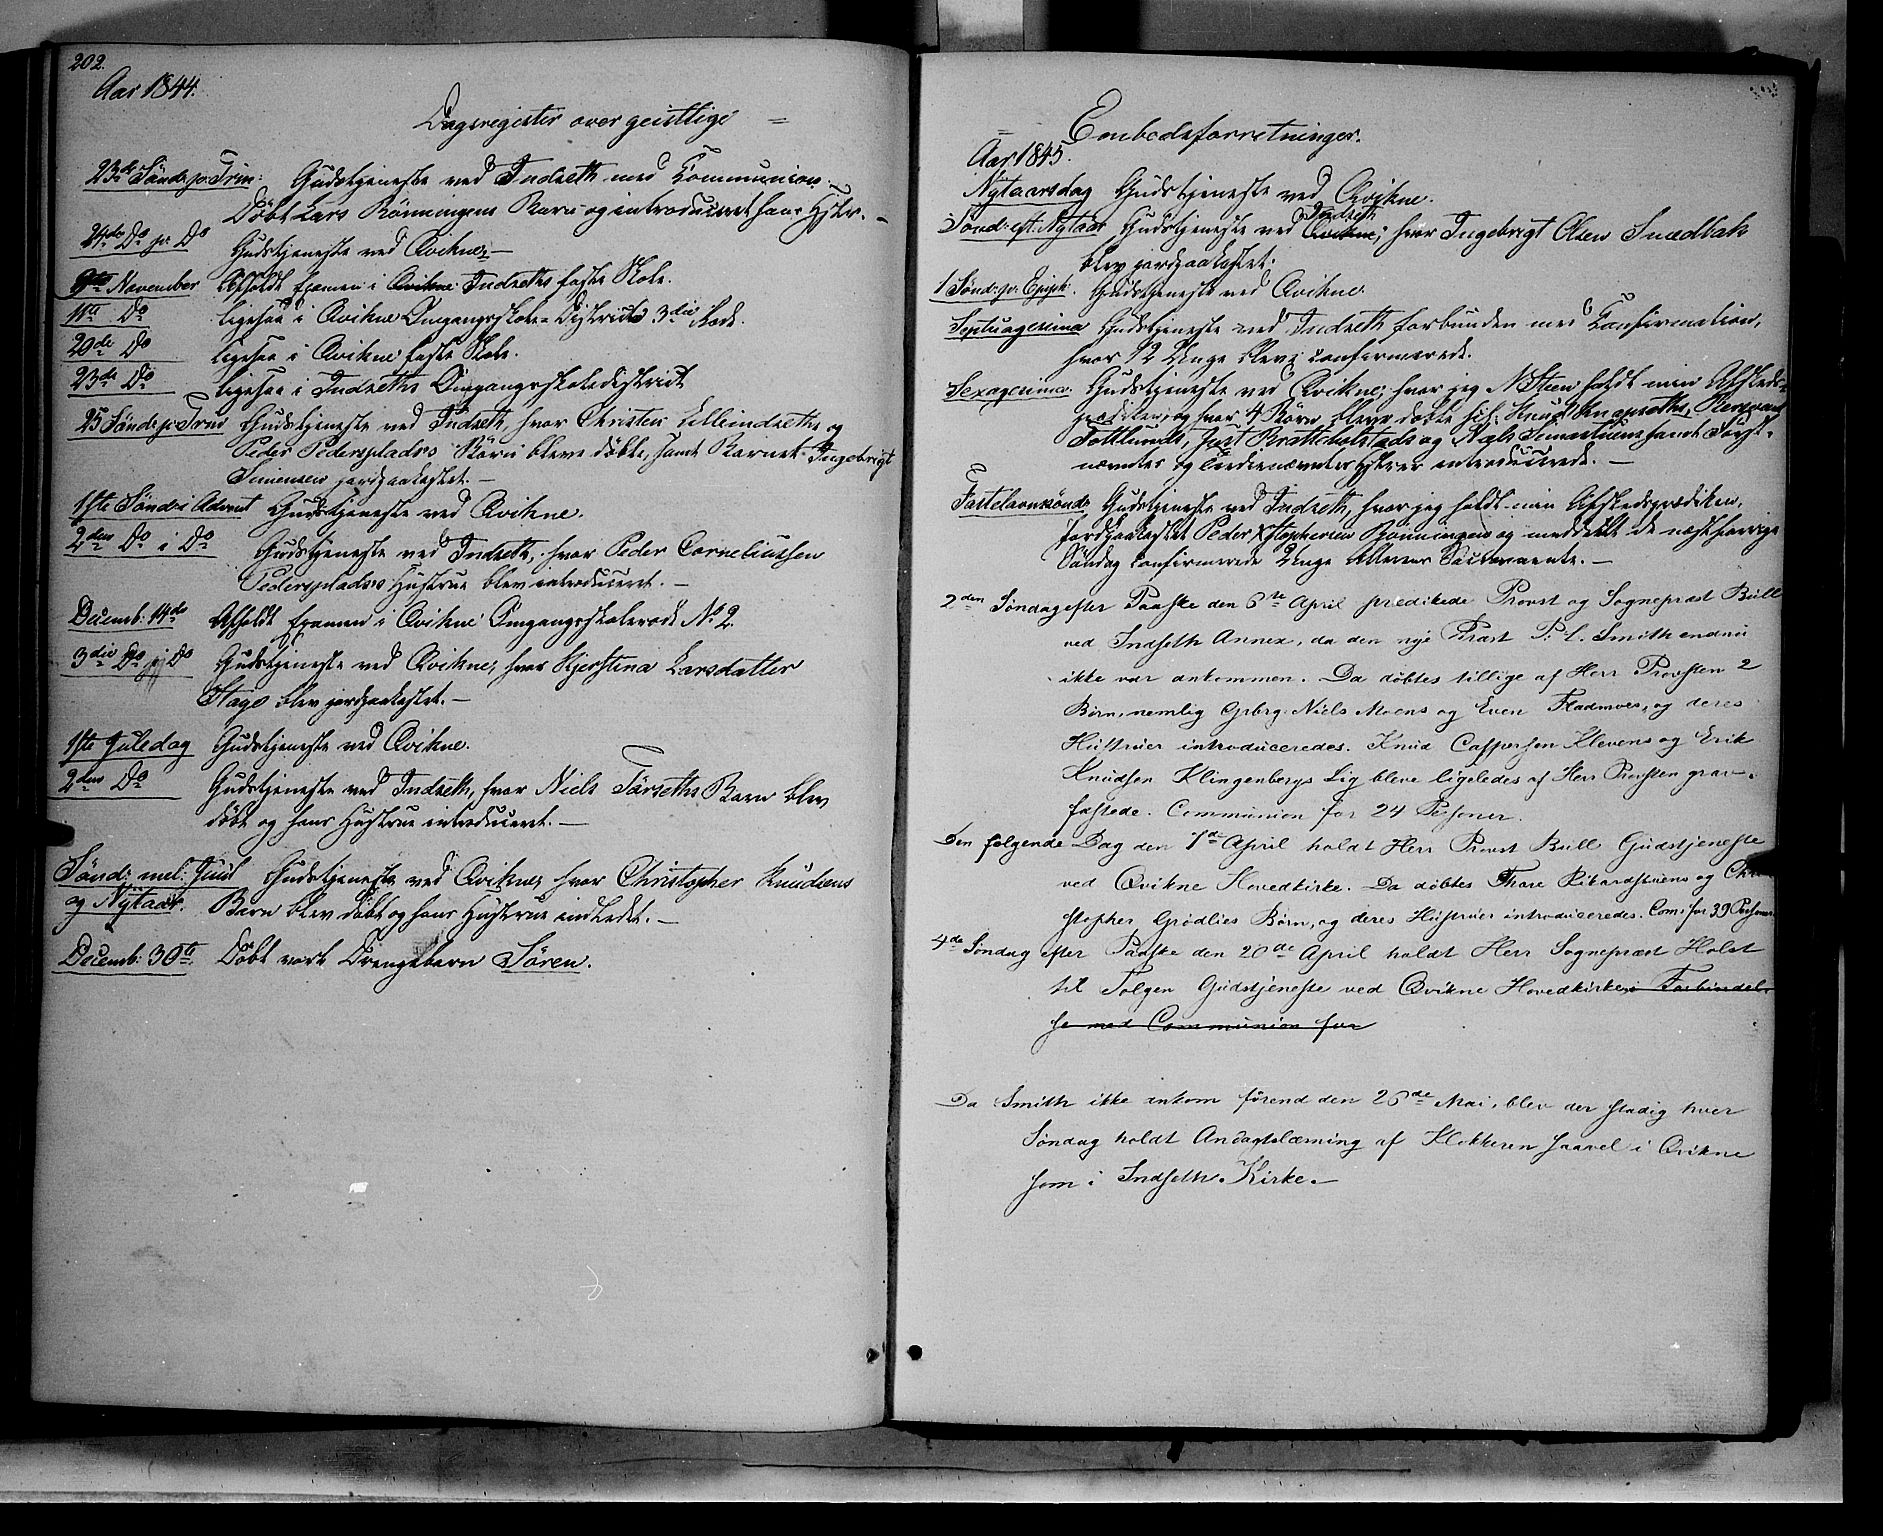 202.
Aar 1844.
Dagsregister over geistlige =
23de Sønd: p: Trin: Gudstjeneste ved Indseth med Communion.
Døbt Lars Rönningens Barn og introduceret hans Hstr. –
24de Do p: Do Gudstjeneste ved Qvikne. –
9de November Afholdt Examen i Qvikne Indseths faste Skole.
11te Do ligesaa i Qvikne Omgangsskole-Districts 3die Rode.
20de Do ligesaa i Qvikne faste Skole.
23de Do ligesaa i Indseths Omgangsskoledistrict
25 Sønd: p: Trin Gudstjeneste ved Indseth, hvor Christen Lilleindseths og
Peder Pedersplads's Børn bleve døbte, samt Barnet Ingebrigt
Simensen jordpaakastet. –
1ste Sønd: i Advent Gudstjeneste ved Qvikne.
2den Do i Do Gudstjeneste ved Indseth, hvor Peder Corneliussen
Pedersplads's Hustrue blev introduceret. –
Decemb: 14de Afholdt Examen i Qvikne Omgangsskolerode No 2.
3die Do i Do Gudstjeneste ved Qvikne, hvor Kjerstina Larsdatter
Hage blev jordpaakastet. –
1ste Juledag Gudstjeneste ved Qvikne.
2den Do Gudstjeneste ved Indseth, hvor Niels Törseths Barn blev
døbt og hans Hustrue introduceret. –
Sønd: mel: Juul Gudstjeneste ved Qvikne, hvor Christopher Knudsens
og Nytaar. Barn blev døbt og hans Hustrue indledet. –
Decemb: 30te Døbt vort Drengebarn Sören.
= Embedsforretninger.
Aar 1845.
Nytaarsdag Gudstjeneste ved Qvikne.
Indseth
Sønd: eft: Nytaar Gudstjeneste ved Qvikne, hvor Ingebrigt Olsen Snedbak
blev jordpaakastet.
1 Sønd: p: Epiph: Gudstjeneste ved Qvikne
Septuagesima Gudstjeneste ved Indseth forbunden med Confirmation,
hvor 12 Unge bleve confirmerede.
Sexagesima Gudstjeneste ved Qvikne, hvor jeg N. Steen holdt min Afskeds-
prædiken, og hvor 4 Børn bleve døbte
nævntes og Hstruer introducerede. –
Fastelavnssønd: Gudstjeneste ved Indseth, hvor jeg holdt min Afskedsprædiken,
jordpaakastet Peder Xstophersen Rönningen og meddeelt de næstforrige
Søndag confirmerede Unge Alterens Sacramente. –
2den Søndag efter Paaske den 6te April predikede Provst og Sognepræst Bull
ved Indseth Annex, da den nye Præst P: L. Smith endnu
ikke var ankommen. Da døbtes tillige af Herr Provsten 2
Børn, nemlig Grbrg. Niels Moens og Even Fladmoes, og deres
Hustruer introduceredes. Knud Caspersen Klevens og Erik
Knudsen Klingenbergs Lig bleve ligeledes af Herr Provsten grav-
fæstede. Communion for 24 Personer.
Den følgende Dag den 7de April holdt Herr Provst Bull Gudstjeneste
ved Qvikne Hovedkirke. Da døbtes Thore Rikardstuens og Chri
stopher Grødlies Børn, og deres Hustruer introduceredes. Com: for 39 Personer.
4de Søndag efter Paaske den 20de April holdt Herr Sognepræst Holst
til Tolgen Gudstjeneste ved Qvikne Hovedkirke i Forbindel-
se med Communion for
Da Smith ikke ankom førend den 26de Mai, blev der stadig hver
Søndag holdt Andagtslæsning af Klokkeren saavel i Qvikne
som i Indseth Kirke. –